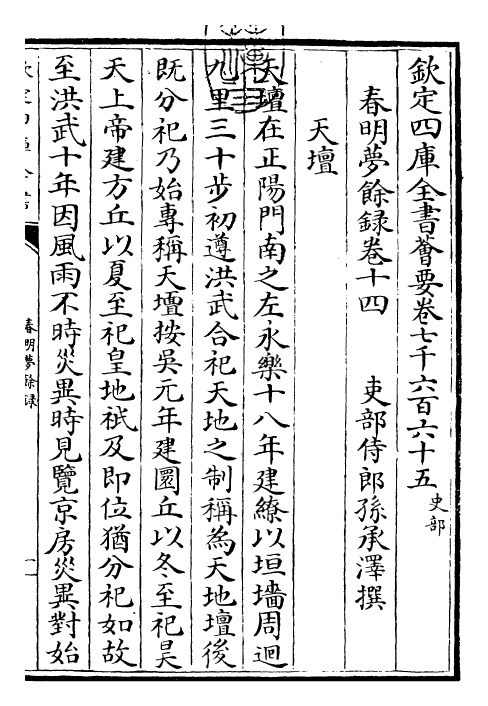 欽定四庫全書薈要卷七千六百六十五 史部
春明夢餘録卷十四 吏部侍郎孫承澤撰
天壇
天壇在正陽門南之左永樂十八年建繚以垣墻周迴
九里三十步初遵洪武合祀天地之制稱為天地壇後
既分祀乃始專稱天壇按吳元年建圜丘以冬至祀昊
天上帝建方丘以夏至祀皇地祇及即位猶分祀如故
至洪武十年因風雨不時災異時見覽京房災異對始
春明夢餘録
一